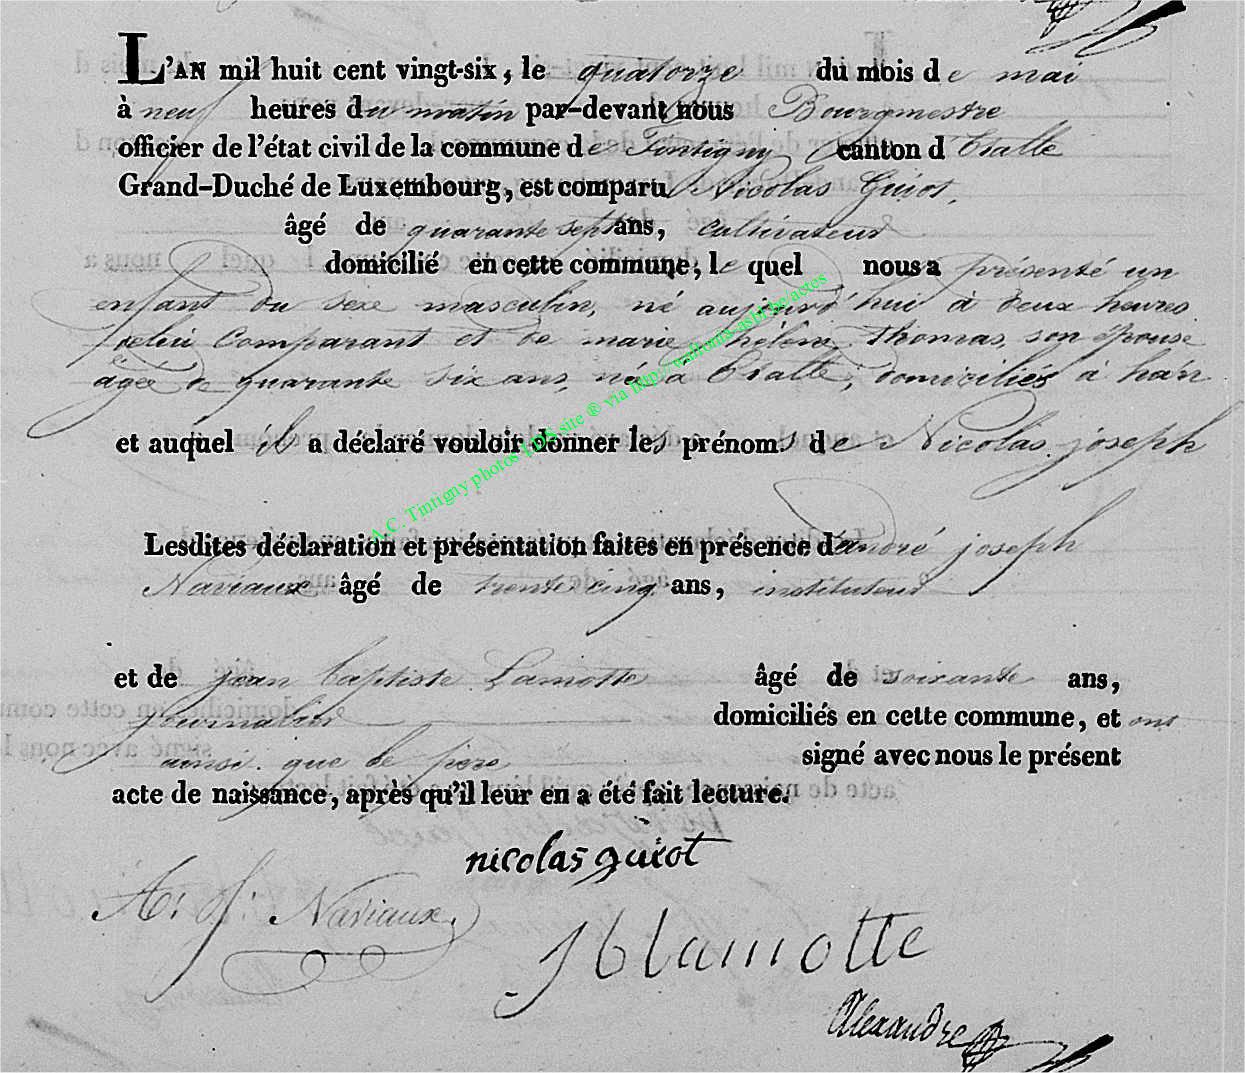 L'AN mil huit cent vingt-six, le quatorze du mois de mai
à neuf heures du matin par-devant nous Bourgmestre
officier de l'état civil de la commune de Tintigny canton d'Etalle
Grand-Duché de Luxembourg, est comparu Nicolas Guiot,
âgé de quarante sept ans, cultivateur
domicilié en cette commune, le quel nous a présenté un
enfant du sexe masculin, né aujourd'hui à deux heures
de lui Comparant et de marie hélène Thomas, son épouse
âgée de quarante six ans, née à Etalle, domiciliés a han
et auquel il a déclaré vouloir donner les prénoms de Nicolas joseph
Lesdites déclaration et présentation faites en présence d'andré joseph
Naviaux âgé de trente cinq ans, instituteur
et de jean baptiste Lamotte âgé de soixante ans,
journalier domiciliés en cette commune, et ont
ainsi que le père signé avec nous le présent
acte de naissance, après qu'il leur en a été fait lecture.
nicolas guiot
A: J: Naviaux.
J b lamotte
Alexandre
A.C. Tintigny photos LDS site ® via http://wallonia-asbl.be/actes